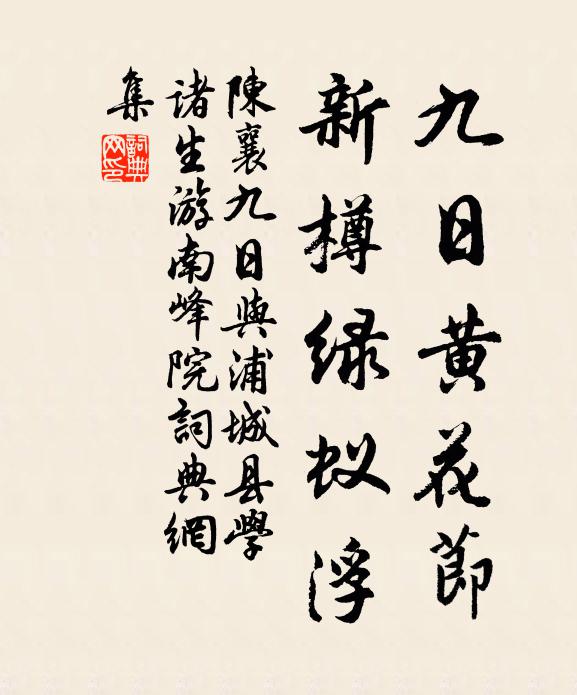 九日黄花節
新樽绿蚁浮
陳襄九日與浦城县學
諸生游南峰院詞典網
集
詞典
网印